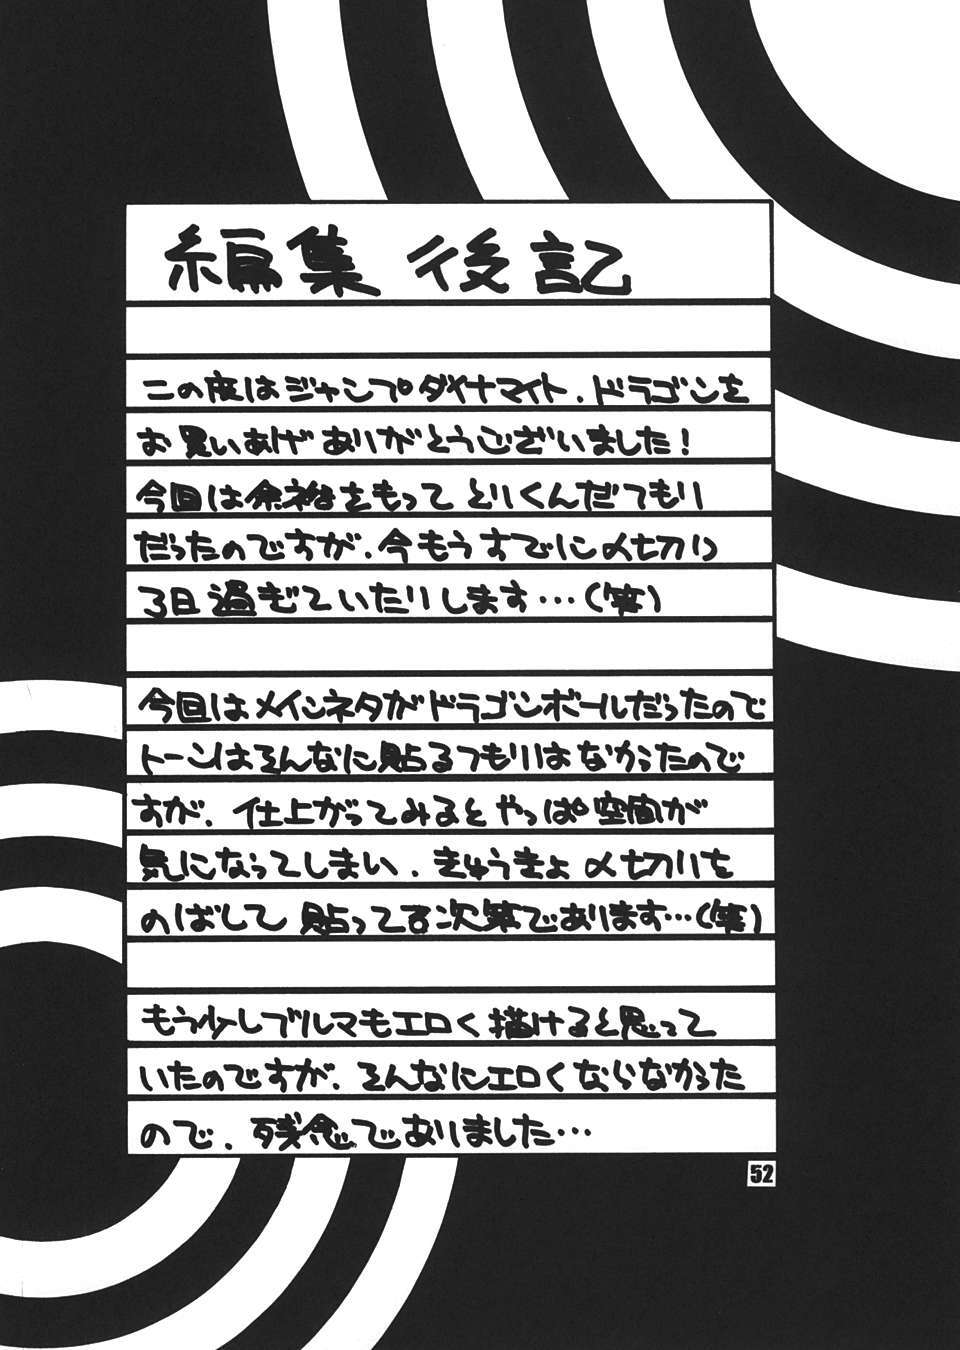 編集後記
この度はジャンプダイナマイト.ドラゴンを
お買いあげありがとうございました!
今回は余裕をもってとりくんだつもり
だったのですが.今もうすでに〆切り
3日過ぎていたりします…(笑)
今回はメインネタがドラゴンボールだったので
トーンはそんなに貼るつもりはなかったので
すが.仕上がってみるとやっぱ空間が
気になってしまい.きゅうきょ〆切りを
のばして貼ってる次第であります…(笑)
もう少しブルマもエロく描けると思って
いたのですが.そんなにエロくならなかった
ので.残念でありました…
52